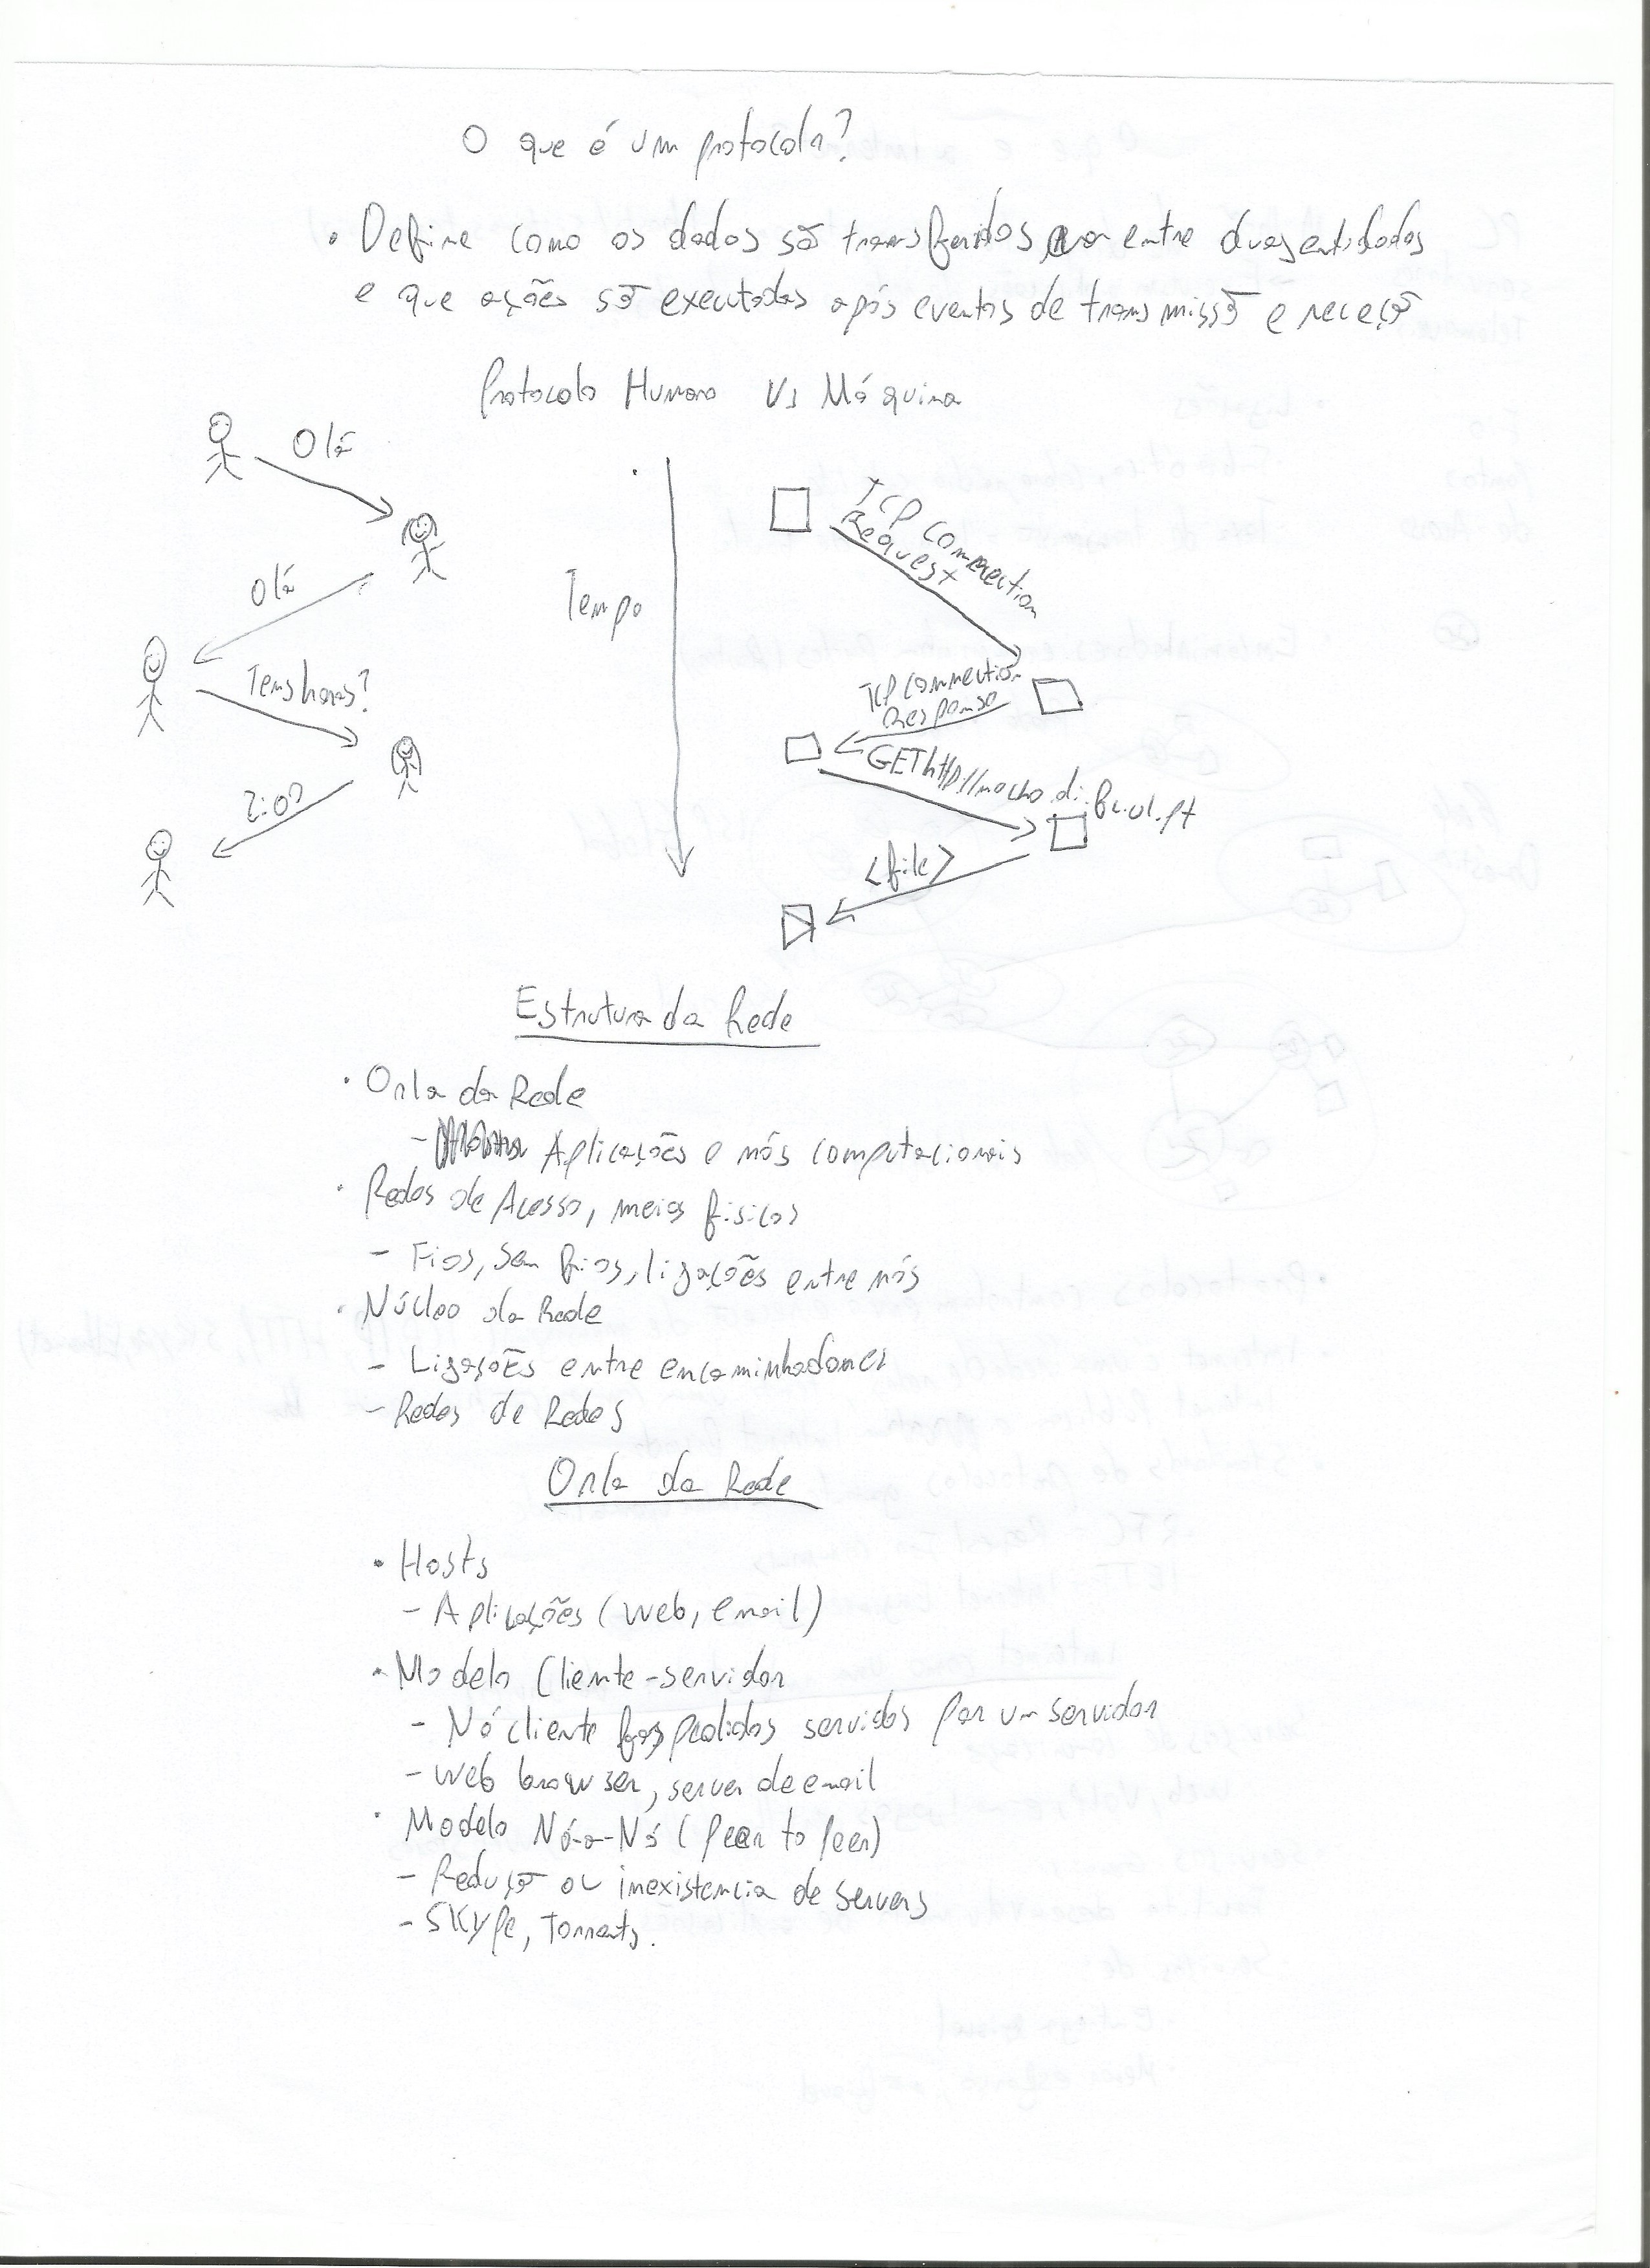 O que é um protocolo?
• Define como os dados são transferidos entre duas entidades
e que ações são executadas após eventos de transmissão e receção
Protocolo Humano Vs Máquina
Olá
Olá
Tens horas?
2:00
Tempo
TCP Connection
Request
TCP Connection
Response
GET http//
.di.fc.ul.pt
<file>
Estrutura da Rede
• Orla da Rede
- Aplicações e nós computacionais
• Redes de Acesso, meios fisicos
- Fios, Sem fios, ligações entre nós
• Núcleo da Rede
- Ligações entre encaminhadores
- Redes de Redes
Orla da Rede
• Hosts
- Aplicações (Web, email)
• Modelo Cliente-servidor
- Nó cliente faz pedidos servidos por um servidor
- Web browser, server de email
• Modelo Nó-a-Nó (Peer to Peer)
- Redução ou inexistencia de servers
- Skype, Torrents.